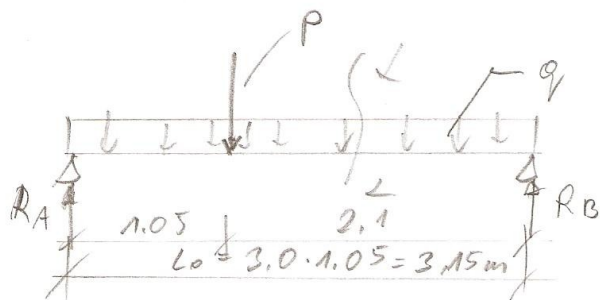 P
q
RA RB
1.05 2.1
Lo = 3.0 · 1.05 = 3.15m